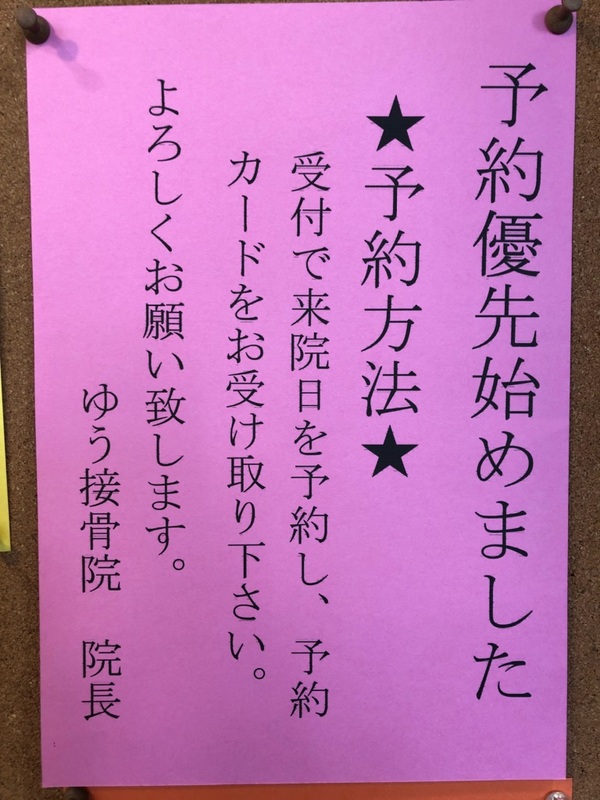 予約優先始めました
★予約方法★
受付で来院日を予約し、予約
カードをお受け取り下さい。
よろしくお願い致します。
ゆう接骨院　院長